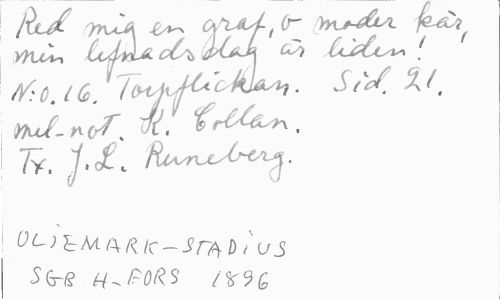 Red mig en graf, o moder kär,
min lefnadsdag är liden!
N:o. 16. Torpflickan. Sid. 21.
mel-not. K. Collan.
Tx. J. L. Runeberg.
OLIEMARK-STADIUS
SGB H-FORS 1896